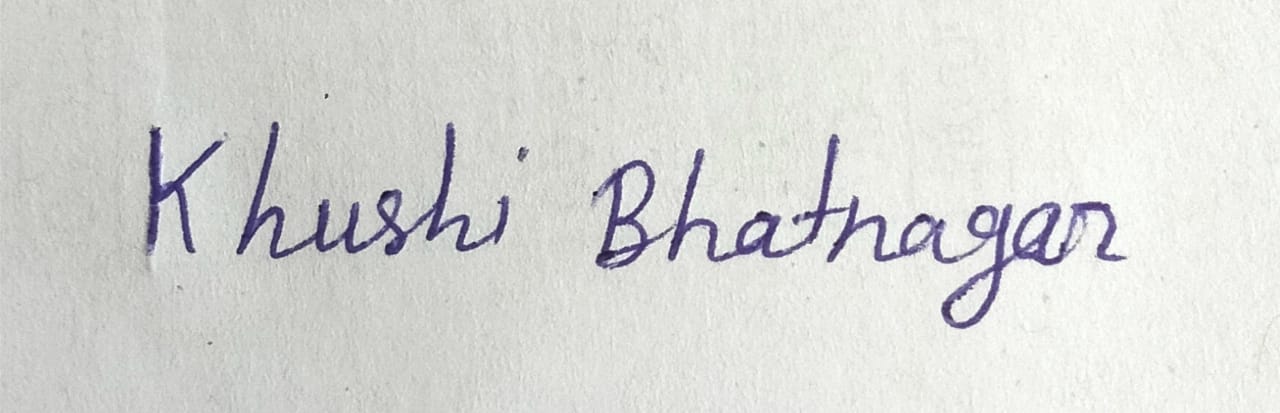 Khushi Bhatnagar